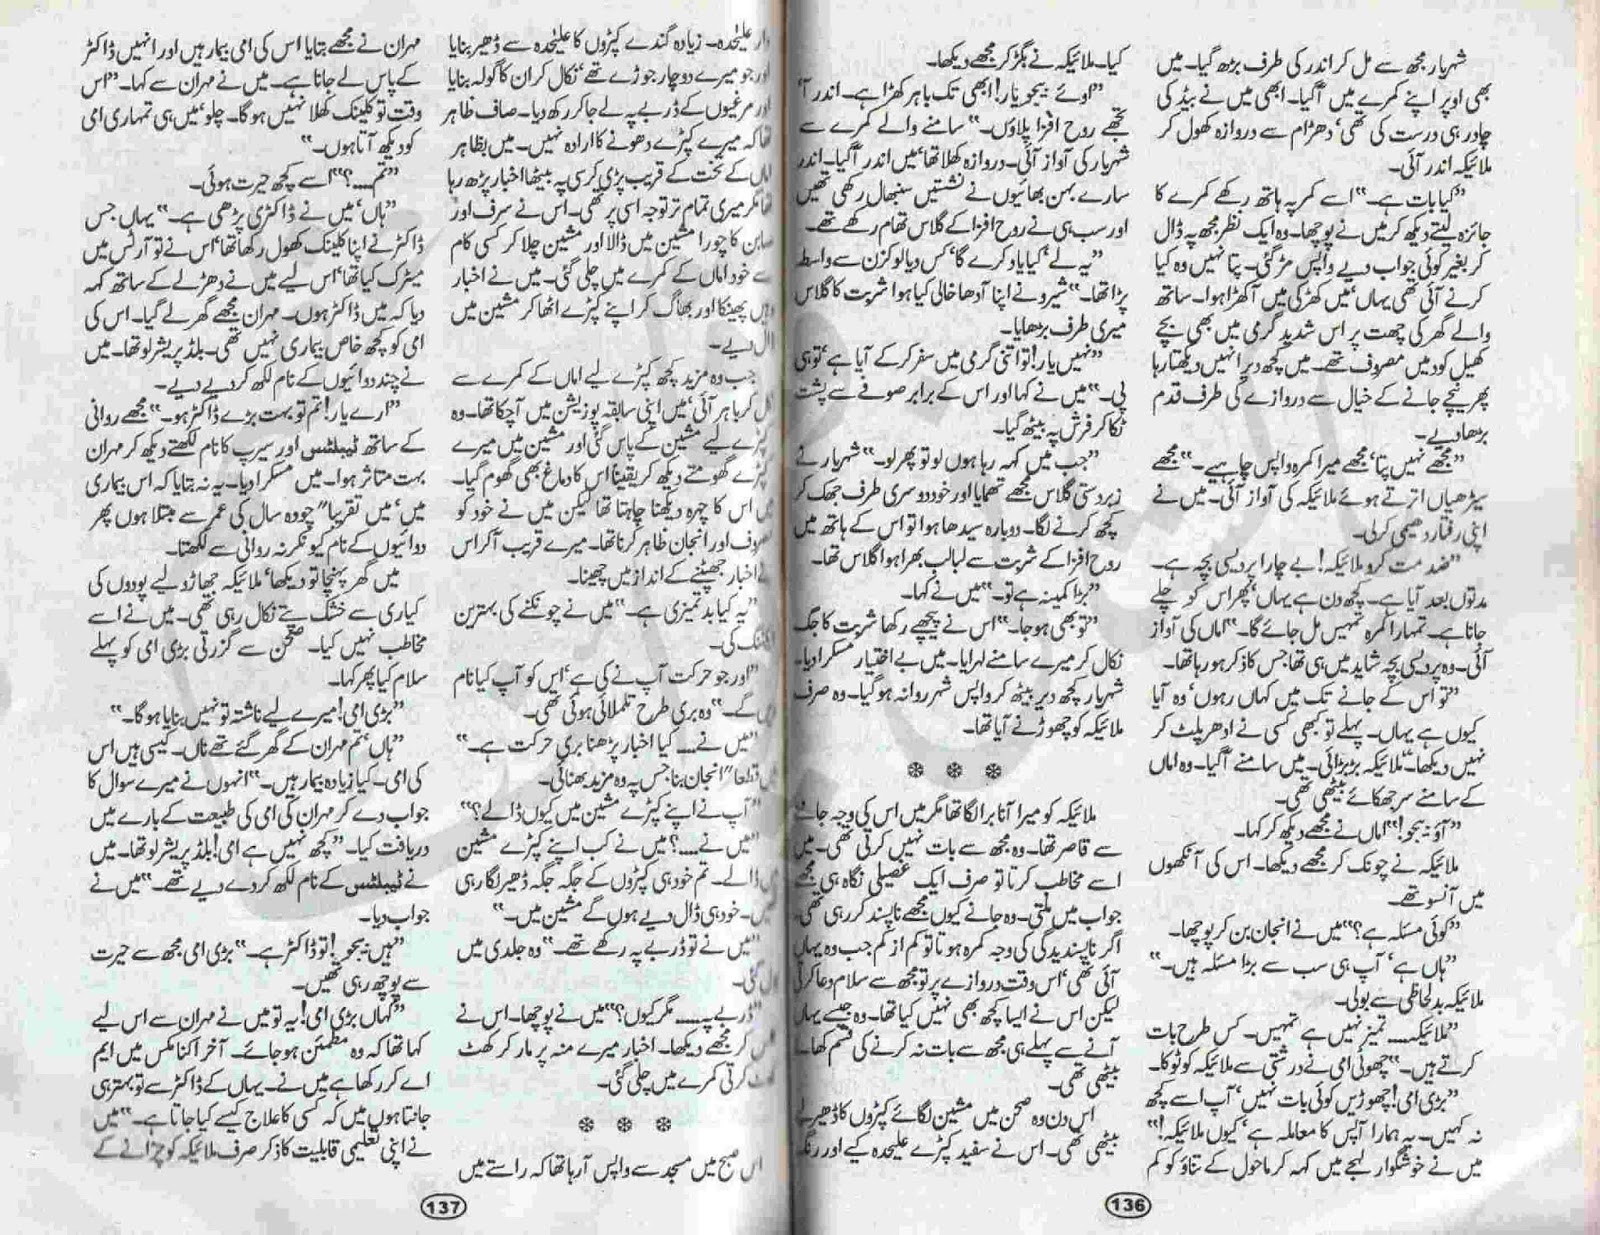 شہریار مجھ سے مل کر اندر کی طرف بڑھ گیا۔ میں
بھی اوپر اپنے کمرے میں آ گیا۔ ابھی میں نے بیڈ کی
چادر ہی درست کی تھی‘ دھڑام سے دروازہ کھول کر
ملائیکہ اندر آئی۔
”کیا بات ہے۔“ اسے کمر پہ ہاتھ رکھے کمرے کا
جائزہ لیتے دیکھ کر میں نے پوچھا۔ وہ ایک نظر مجھ پہ ڈال
کر بغیر کوئی جواب دیے واپس مڑ گئی۔ پتا نہیں وہ کیا
کرنے آئی تھی یہاں‘ میں کھڑکی میں آ کھڑا ہوا۔ ساتھ
والے گھر کی چھت پر اس شدید گرمی میں بھی بچے
کھیل کود میں مصروف تھے۔ میں کچھ دیر انہیں دیکھتا رہا
پھر نیچے جانے کے خیال سے دروازے کی طرف قدم
بڑھا دیے۔
”مجھے نہیں پتا‘ مجھے میرا کمرہ واپس چاہیے۔“ مجھے
سیڑھیاں اترتے ہوئے ملائیکہ کی آواز آئی۔ میں نے
اپنی رفتار دھیمی کر لی۔
”ضد مت کرو ملائیکہ! بے چارا پردیسی بچہ ہے۔
مدتوں بعد آیا ہے۔ کچھ دن ہے یہاں‘ پھر اس کو چلے
جانا ہے۔ تمہارا کمرہ تمہیں مل جائے گا۔“ اماں کی آواز
آئی۔ وہ پردیسی بچہ شاید میں ہی تھا جس کا ذکر ہو رہا تھا۔
”تو اس کے جانے تک میں کہاں رہوں‘ وہ آیا
کیوں ہے یہاں۔ پہلے تو کبھی کسی نے ادھر پلٹ کر
نہیں دیکھا۔“ ملائیکہ بڑبڑائی۔ میں سامنے آ گیا۔ وہ اماں
کے سامنے سر جھکائے بیٹھی تھی۔
”آؤ بیجو!“ اماں نے مجھے دیکھ کر کہا۔
ملائیکہ نے چونک کر مجھے دیکھا۔ اس کی آنکھوں
میں آنسو تھے۔
”کوئی مسئلہ ہے؟“ میں نے انجان بن کر پوچھا۔
”ہاں ہے‘ آپ ہی سب سے بڑا مسئلہ ہیں۔“
ملائیکہ بدلحاظی سے بولی۔
”ملائیکہ.... تمیز نہیں ہے تمہیں۔ کس طرح بات
کرتے ہیں۔“ چھوٹی امی نے درشتی سے ملائیکہ کو ٹوکا۔
”بڑی امی! چھوڑیں کوئی بات نہیں‘ آپ اسے کچھ
نہ کہیں۔ یہ ہمارا آپس کا معاملہ ہے‘ کیوں ملائیکہ!“
میں نے خوشگوار لہجے میں کہہ کر ماحول کے تناؤ کو کم
کیا۔ ملائیکہ نے بگڑ کر مجھے دیکھا۔
”اوئے بیجو یار! ابھی تک باہر کھڑا ہے۔ اندر آ‘
تجھے روح افزا پلاؤں۔“ سامنے والے کمرے سے
شہریار کی آواز آئی۔ دروازہ کھلا تھا‘ میں اندر آ گیا۔ اندر
سارے بہن بھائیوں نے نشستیں سنبھال رکھی تھیں
اور سب ہی نے روح افزا کے گلاس تھام رکھے تھے۔
”یہ لے‘ کیا یاد کرے گا‘ کس دیالو کزن سے واسطہ
پڑا تھا۔“ شیرو نے اپنا آدھا خالی کیا ہوا شربت کا گلاس
میری طرف بڑھایا۔
”نہیں یار! تو اتنی گرمی میں سفر کر کے آیا ہے‘ تو ہی
پی۔“ میں نے کہا اور اس کے برابر صوفے سے پشت
ٹکا کر فرش پہ بیٹھ گیا۔
”جب میں کہہ رہا ہوں لو تو پھر لو۔“ شہریار نے
زبردستی گلاس مجھے تھمایا اور خود دوسری طرف جھک کر
کچھ کرنے لگا۔ دوبارہ سیدھا ہوا تو اس کے ہاتھ میں
روح افزا کے شربت سے لبالب بھرا ہوا گلاس تھا۔
”بڑا کمینہ ہے تو۔“ میں نے کہا۔
”تو بھی ہو جا۔“ اس نے پیچھے رکھا شربت کا جگ
نکال کر میرے سامنے لہرایا۔ میں بے اختیار مسکرا دیا۔
شہریار کچھ دیر بیٹھ کر واپس شہر روانہ ہو گیا۔ وہ صرف
ملائیکہ کو چھوڑنے آیا تھا۔
❋ ❋ ❋
ملائیکہ کو میرا آنا برا لگا تھا مگر میں اس کی وجہ جاننے
سے قاصر تھا۔ وہ مجھ سے بات نہیں کرتی تھی۔ میں
اسے مخاطب کرتا تو صرف ایک غصیلی نگاہ ہی مجھے
جواب میں ملتی۔ وہ جانے کیوں مجھے ناپسند کر رہی تھی۔
اگر ناپسندیدگی کی وجہ کمرہ ہوتا تو کم از کم جب وہ یہاں
آئی تھی‘ اس وقت دروازے پر تو مجھ سے سلام دعا کرتی
لیکن اس نے ایسا کچھ بھی نہیں کیا تھا۔ وہ جیسے یہاں
آنے سے پہلے ہی مجھ سے بات نہ کرنے کی قسم کھا
بیٹھی تھی۔
اس دن وہ صحن میں مشین لگائے کپڑوں کا ڈھیر لیے
بیٹھی تھی۔ اس نے سفید کپڑے علیحدہ کیے اور رنگ
136
دار علیحدہ۔ زیادہ گندے کپڑوں کا علیحدہ سے ڈھیر بنایا
اور جو میرے دو چار جوڑے تھے‘ نکال کر ان کا گولہ بنایا
اور مرغیوں کے ڈربے پہ لے جا کر رکھ دیا۔ صاف ظاہر
تھا کہ میرے کپڑے دھونے کا ارادہ نہیں۔ میں بظاہر
اماں کے تخت کے قریب پڑی کرسی پہ بیٹھا اخبار پڑھ رہا
تھا مگر میری تمام تر توجہ اسی پر تھی۔ اس نے سرف اور
صابن کا چورا مشین میں ڈالا اور مشین چلا کر کسی کام
سے خود اماں کے کمرے میں چلی گئی۔ میں نے اخبار
وہیں پھینکا اور بھاگ کر اپنے کپڑے اٹھا کر مشین میں
ڈال دیے۔
جب وہ مزید کچھ کپڑے لیے اماں کے کمرے سے
نکل کر باہر آئی‘ میں اپنی سابقہ پوزیشن میں آ چکا تھا۔ وہ
کپڑے لیے مشین کے پاس گئی اور مشین میں میرے
کپڑے گھومتے دیکھ کر یقیناً اس کا دماغ بھی گھوم گیا۔
میں اس کا چہرہ دیکھنا چاہتا تھا لیکن میں نے خود کو
مصروف اور انجان ظاہر کرنا تھا۔ میرے قریب آ کر اس
نے اخبار جھپٹنے کے انداز میں چھینا۔
”یہ کیا بدتمیزی ہے۔“ میں نے چونکنے کی بہترین
ایکٹنگ کی۔
”اور جو حرکت آپ نے کی ہے‘ اس کو آپ کیا نام
دیں گے۔“ وہ بری طرح تلملائی ہوئی تھی۔
”میں نے.... کیا اخبار پڑھنا بری حرکت ہے۔“
میں قطعاً انجان بنا جس پہ وہ مزید بھنائی۔
”آپ نے اپنے کپڑے مشین میں کیوں ڈالے؟“
”میں نے....؟ میں نے کب اپنے کپڑے مشین
میں ڈالے۔ تم خود ہی کپڑوں کے جگہ جگہ ڈھیر لگا رہی
تھیں۔ خود ہی ڈال دیے ہوں گے مشین میں۔“
”میں نے تو ڈربے پہ رکھے تھے۔“ وہ جلدی میں
بول گئی۔
”ڈربے پہ.... مگر کیوں؟“ میں نے پوچھا۔ اس نے
کر مجھے دیکھا۔ اخبار میرے منہ پر مار کر کھٹ
کھٹ کرتی کمرے میں چلی گئی۔
❋ ❋ ❋
اس صبح میں مسجد سے واپس آ رہا تھا کہ راستے میں
مہران نے مجھے بتایا اس کی امی بیمار ہیں اور انہیں ڈاکٹر
کے پاس لے جانا ہے۔ میں نے مہران سے کہا۔ ”اس
وقت تو کلینک کھلا نہیں ہو گا۔ چلو‘ میں ہی تمہاری امی
کو دیکھ آتا ہوں۔“
”تم....؟“ اسے کچھ حیرت ہوئی۔
”ہاں‘ میں نے ڈاکٹری پڑھی ہے۔“ یہاں جس
ڈاکٹر نے اپنا کلینک کھول رکھا تھا‘ اس نے تو آرٹس میں
میٹرک کیا تھا‘ اس لیے میں نے دھڑلے کے ساتھ کہہ
دیا کہ میں ڈاکٹر ہوں۔ مہران مجھے گھر لے گیا۔ اس کی
امی کو کچھ خاص بیماری نہیں تھی۔ بلڈ پریشر لو تھا۔ میں
نے چند دوائیوں کے نام لکھ کر دے دیے۔
”ارے یار! تم تو بہت بڑے ڈاکٹر ہو۔“ مجھے روانی
کے ساتھ ٹیبلٹس اور سیرپ کا نام لکھتے دیکھ کر مہران
بہت متاثر ہوا۔ میں مسکرا دیا۔ یہ نہ بتایا کہ اس بیماری
میں‘ میں تقریباً چودہ سال کی عمر سے مبتلا ہوں پھر
دوائیوں کے نام کیونکر نہ روانی سے لکھتا۔
میں گھر پہنچا تو دیکھا‘ ملائیکہ جھاڑو لیے پودوں کی
کیاری سے خشک پتے نکال رہی تھی۔ میں نے اسے
مخاطب نہیں کیا۔ صحن سے گزرتی بڑی امی کو پہلے
سلام کیا پھر کہا۔
”بڑی امی! میرے لیے ناشتہ تو نہیں بنایا ہو گا۔“
”ہاں‘ تم مہران کے گھر گئے تھے ناں۔ کیسی ہیں اس
کی امی۔ کیا زیادہ بیمار ہیں۔“ انہوں نے میرے سوال کا
جواب دے کر مہران کی امی کی طبیعت کے بارے میں
دریافت کیا۔ ”کچھ نہیں ہے امی! بلڈ پریشر لو تھا۔ میں
نے ٹیبلٹس کے نام لکھ کر دے دیے تھے۔“ میں نے
جواب دیا۔
”ہیں بیجو! تو ڈاکٹر ہے۔“ بڑی امی مجھ سے حیرت
سے پوچھ رہی تھیں۔
”کہاں بڑی امی! یہ تو میں نے مہران سے اس لیے
کہا تھا کہ وہ مطمئن ہو جائے۔ آخر اکنامکس میں ایم
اے کر رکھا ہے میں نے۔ یہاں کے ڈاکٹر سے تو بہتر ہی
جانتا ہوں میں کہ کسی کا علاج کیسے کیا جاتا ہے۔“ میں
نے اپنی تعلیمی قابلیت کا ذکر صرف ملائیکہ کو چڑانے کے
137